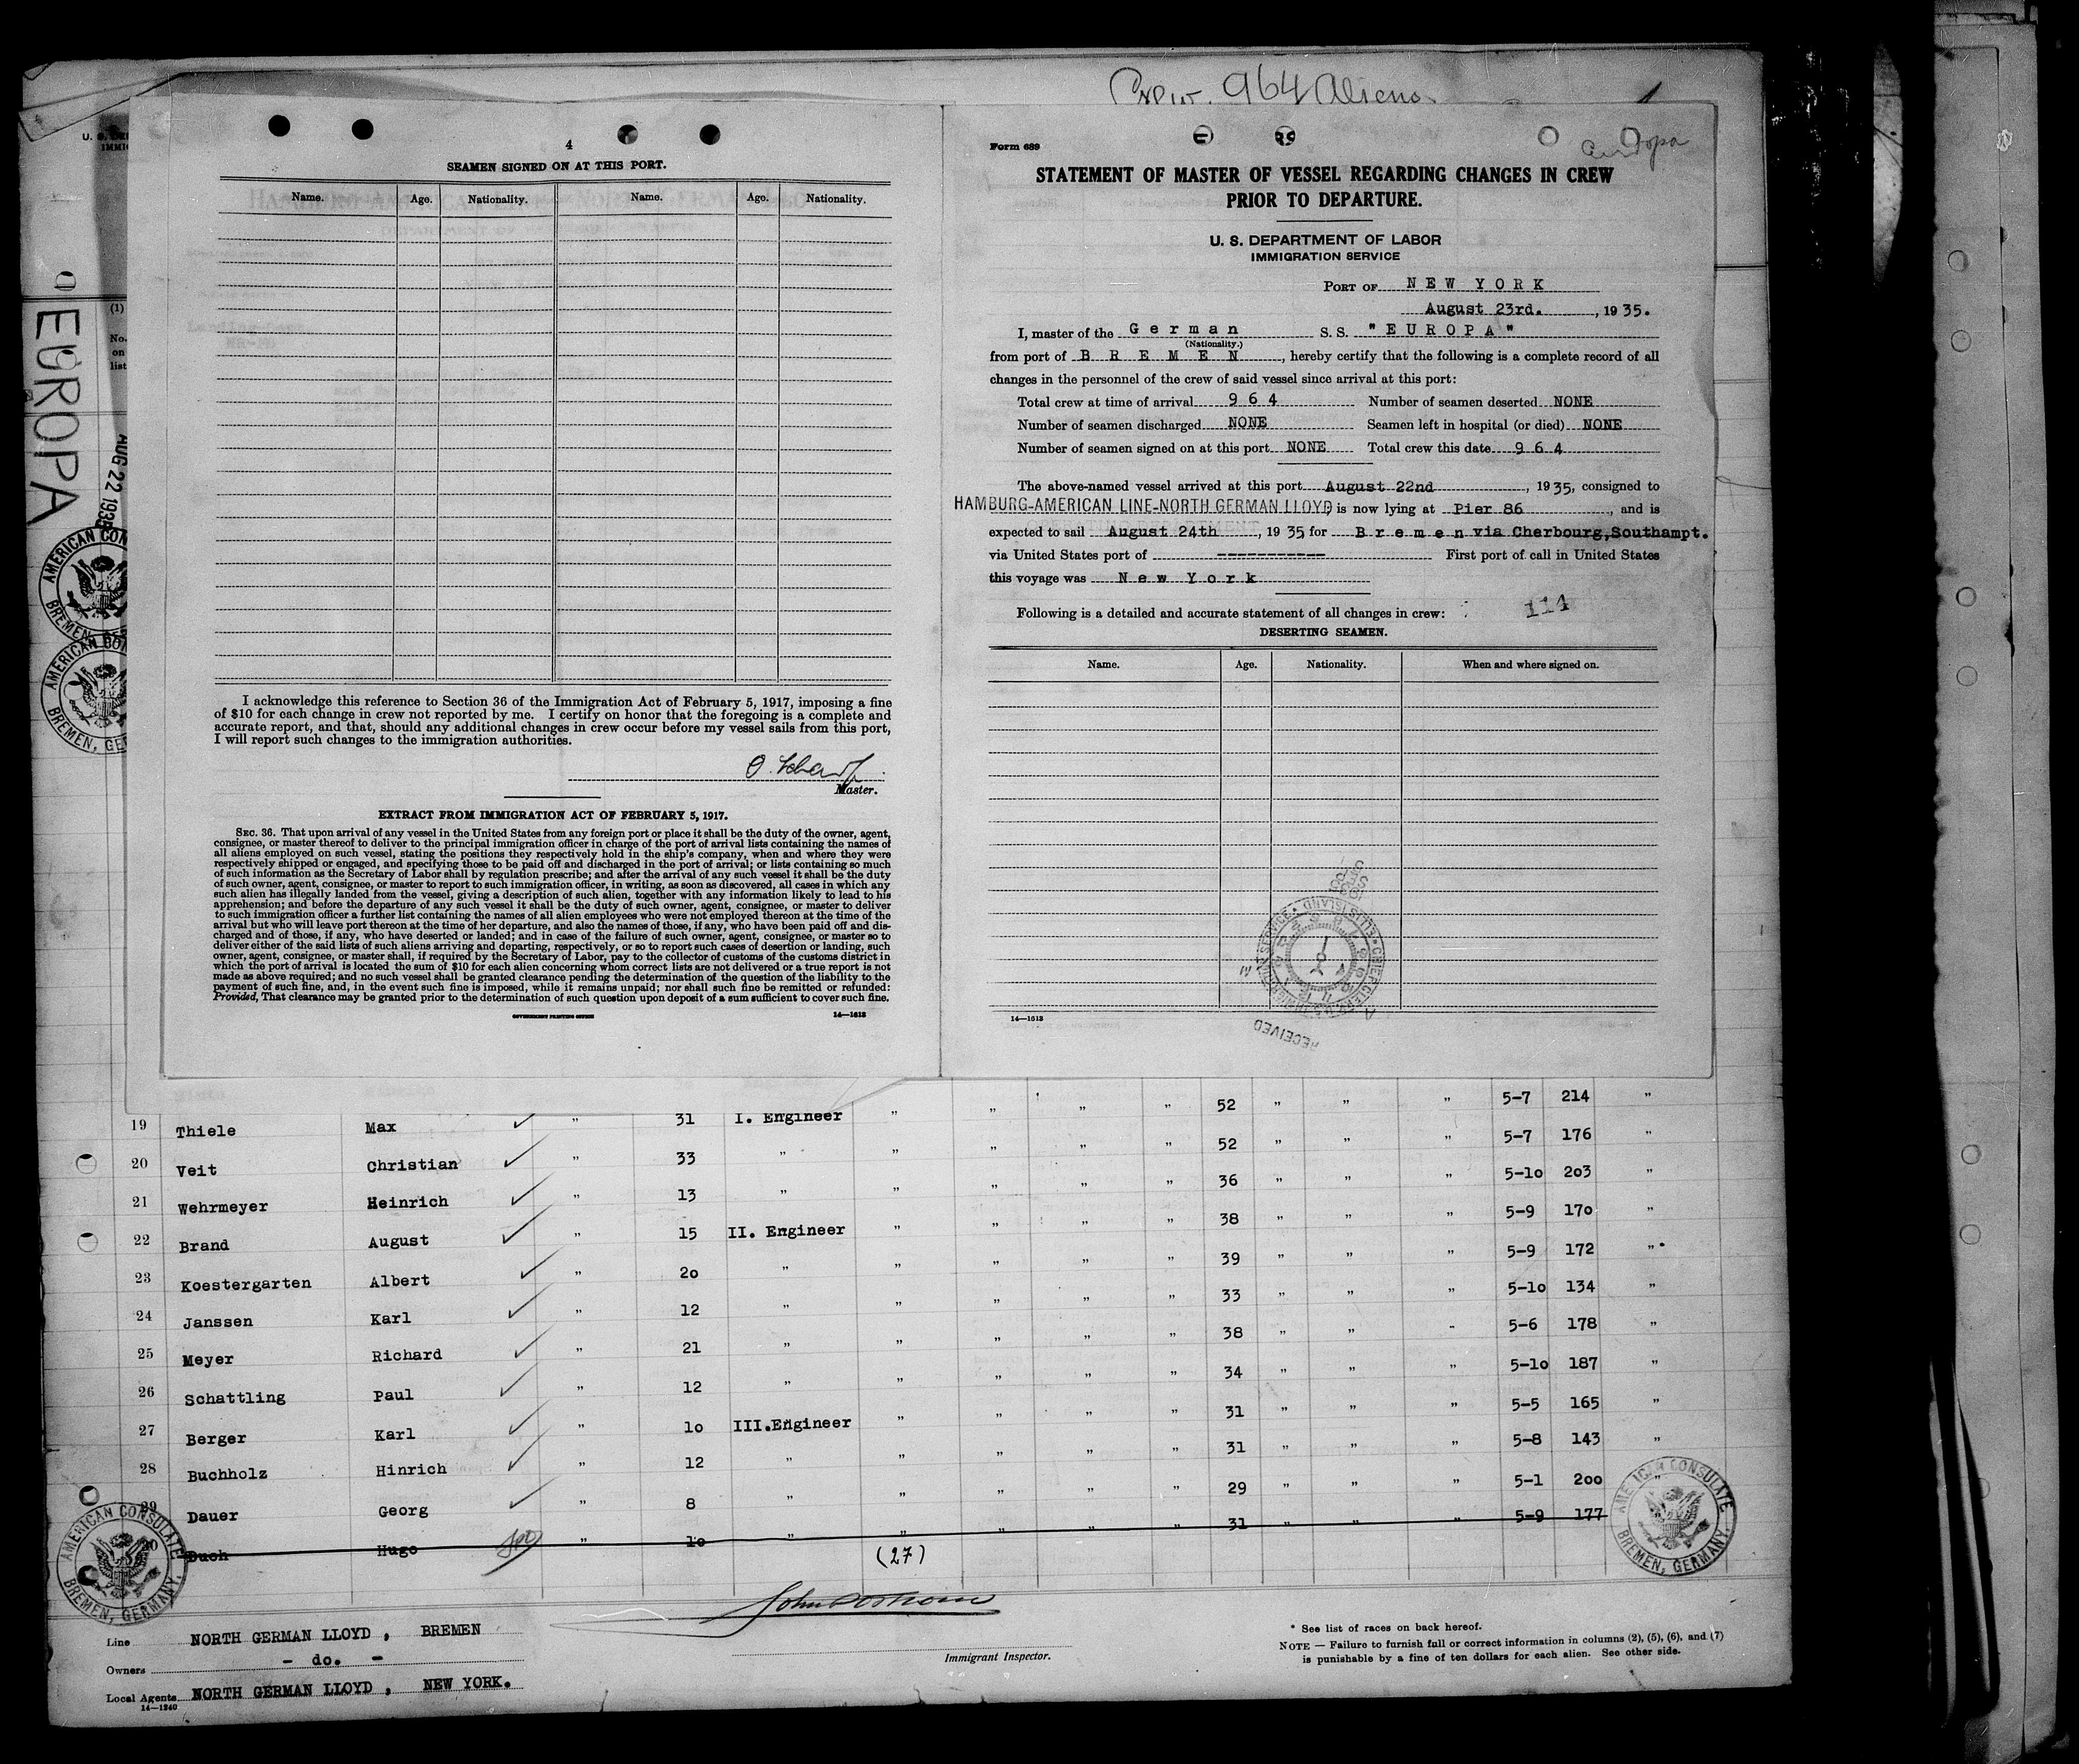 964 Aliens
U. S.
EUROPA
AUG 22 1935
(1)
No.
on
list
AMERICAN CON
BREMEN
AMERICAN CON
BREMEN, GE
4
SEAMEN SIGNED ON AT THIS PORT.
Name. Age. Nationality. Name. Age. Nationality.
I acknowledge this reference to Section 36 of the Immigration Act of February 5, 1917, imposing a fine
of $10 for each change in crew not reported by me. I certify on honor that the foregoing is a complete and
accurate report, and that, should any additional changes in crew occur before my vessel sails from this port,
I will report such changes to the immigration authorities.
O. Scharf
Master.
EXTRACT FROM IMMIGRATION ACT OF FEBRUARY 5, 1917.
SEC. 36. That upon arrival of any vessel in the United States from any foreign port or place it shall be the duty of the owner, agent,
consignee, or master thereof to deliver to the principal immigration officer in charge of the port of arrival lists containing the names of
all aliens employed on such vessel, stating the positions they respectively hold in the ship's company, when and where they were
respectively shipped or engaged, and specifying those to be paid off and discharged in the port of arrival; or lists containing so much
of such information as the Secretary of Labor shall by regulation prescribe; and after the arrival of any such vessel it shall be the duty
of such owner, agent, consignee, or master to report to such immigration officer, in writing, as soon as discovered, all cases in which any
such alien has illegally landed from the vessel, giving a description of such alien, together with any information likely to lead to his
apprehension; and before the departure of any such vessel it shall be the duty of such owner, agent, consignee, or master to deliver
to such immigration officer a further list containing the names of all alien employees who were not employed thereon at the time of the
arrival but who will leave port thereon at the time of her departure, and also the names of those, if any, who have been paid off and dis-
charged and of those, if any, who have deserted or landed; and in case of the failure of such owner, agent, consignee, or master so to
deliver either of the said lists of such aliens arriving and departing, respectively, or so to report such cases of desertion or landing, such
owner, agent, consignee, or master shall, if required by the Secretary of Labor, pay to the collector of customs of the customs district in
which the port of arrival is located the sum of $10 for each alien concerning whom correct lists are not delivered or a true report is not
made as above required; and no such vessel shall be granted clearance pending the determination of the question of the liability to the
payment of such fine, and, in the event such fine is imposed, while it remains unpaid; nor shall such fine be remitted or refunded:
Provided, That clearance may be granted prior to the determination of such question upon deposit of a sum sufficient to cover such fine.
GOVERNMENT PRINTING OFFICE 14—1613
Form 689
Europa
STATEMENT OF MASTER OF VESSEL REGARDING CHANGES IN CREW
PRIOR TO DEPARTURE.
U. S. DEPARTMENT OF LABOR
IMMIGRATION SERVICE
PORT OF NEW YORK
August 23rd. , 1935.
I, master of the German S. S. "EUROPA"
(Nationality.)
from port of BREMEN , hereby certify that the following is a complete record of all
changes in the personnel of the crew of said vessel since arrival at this port:
Total crew at time of arrival 964 Number of seamen deserted NONE
Number of seamen discharged NONE Seamen left in hospital (or died) NONE
Number of seamen signed on at this port NONE Total crew this date 964
The above-named vessel arrived at this port August 22nd , 1935, consigned to
HAMBURG-AMERICAN LINE-NORTH GERMAN LLOYD is now lying at Pier 86 , and is
expected to sail August 24th , 1935, for Bremen via Cherbourg,Southampt.
via United States port of ----------- First port of call in United States
this voyage was New York
Following is a detailed and accurate statement of all changes in crew: 114
DESERTING SEAMEN.
Name. Age. Nationality. When and where signed on.
RECEIVED
14—1613
19 Thiele Max " 31 I. Engineer " " " " 52 " " " 5-7 214 "
20 Veit Christian " 33 " " " " " 52 " " " 5-7 176 "
21 Wehrmeyer Heinrich " 13 " " " " " 36 " " " 5-10 203 "
22 Brand August " 15 II. Engineer " " " " 38 " " " 5-9 170 "
23 Koestergarten Albert " 20 " " " " " 39 " " " 5-9 172 "
24 Janssen Karl " 12 " " " " " 33 " " " 5-10 134 "
25 Meyer Richard " 21 " " " " " 38 " " " 5-6 178 "
26 Schattling Paul " 12 " " " " " 34 " " " 5-10 187 "
27 Berger Karl " 10 III.Engineer " " " " 31 " " " 5-5 165 "
28 Buchholz Hinrich " 12 " " " " " 31 " " " 5-8 143 "
29 Dauer Georg " 8 " " " " " 29 " " " 5-1 200 "
30 Duch Hugo " 10 " " " " " 31 " " " 5-9 177
(27)
AMERICAN CONSULATE
BREMEN, GERMANY.
AMERICAN CONSULATE
BREMEN, GERMANY.
Line NORTH GERMAN LLOYD , BREMEN
Owners - do. -
Local Agents NORTH GERMAN LLOYD , NEW YORK.
14—1240
Immigrant Inspector.
* See list of races on back hereof.
NOTE — Failure to furnish full or correct information in columns (2), (5), (6), and (7)
is punishable by a fine of ten dollars for each alien. See other side.